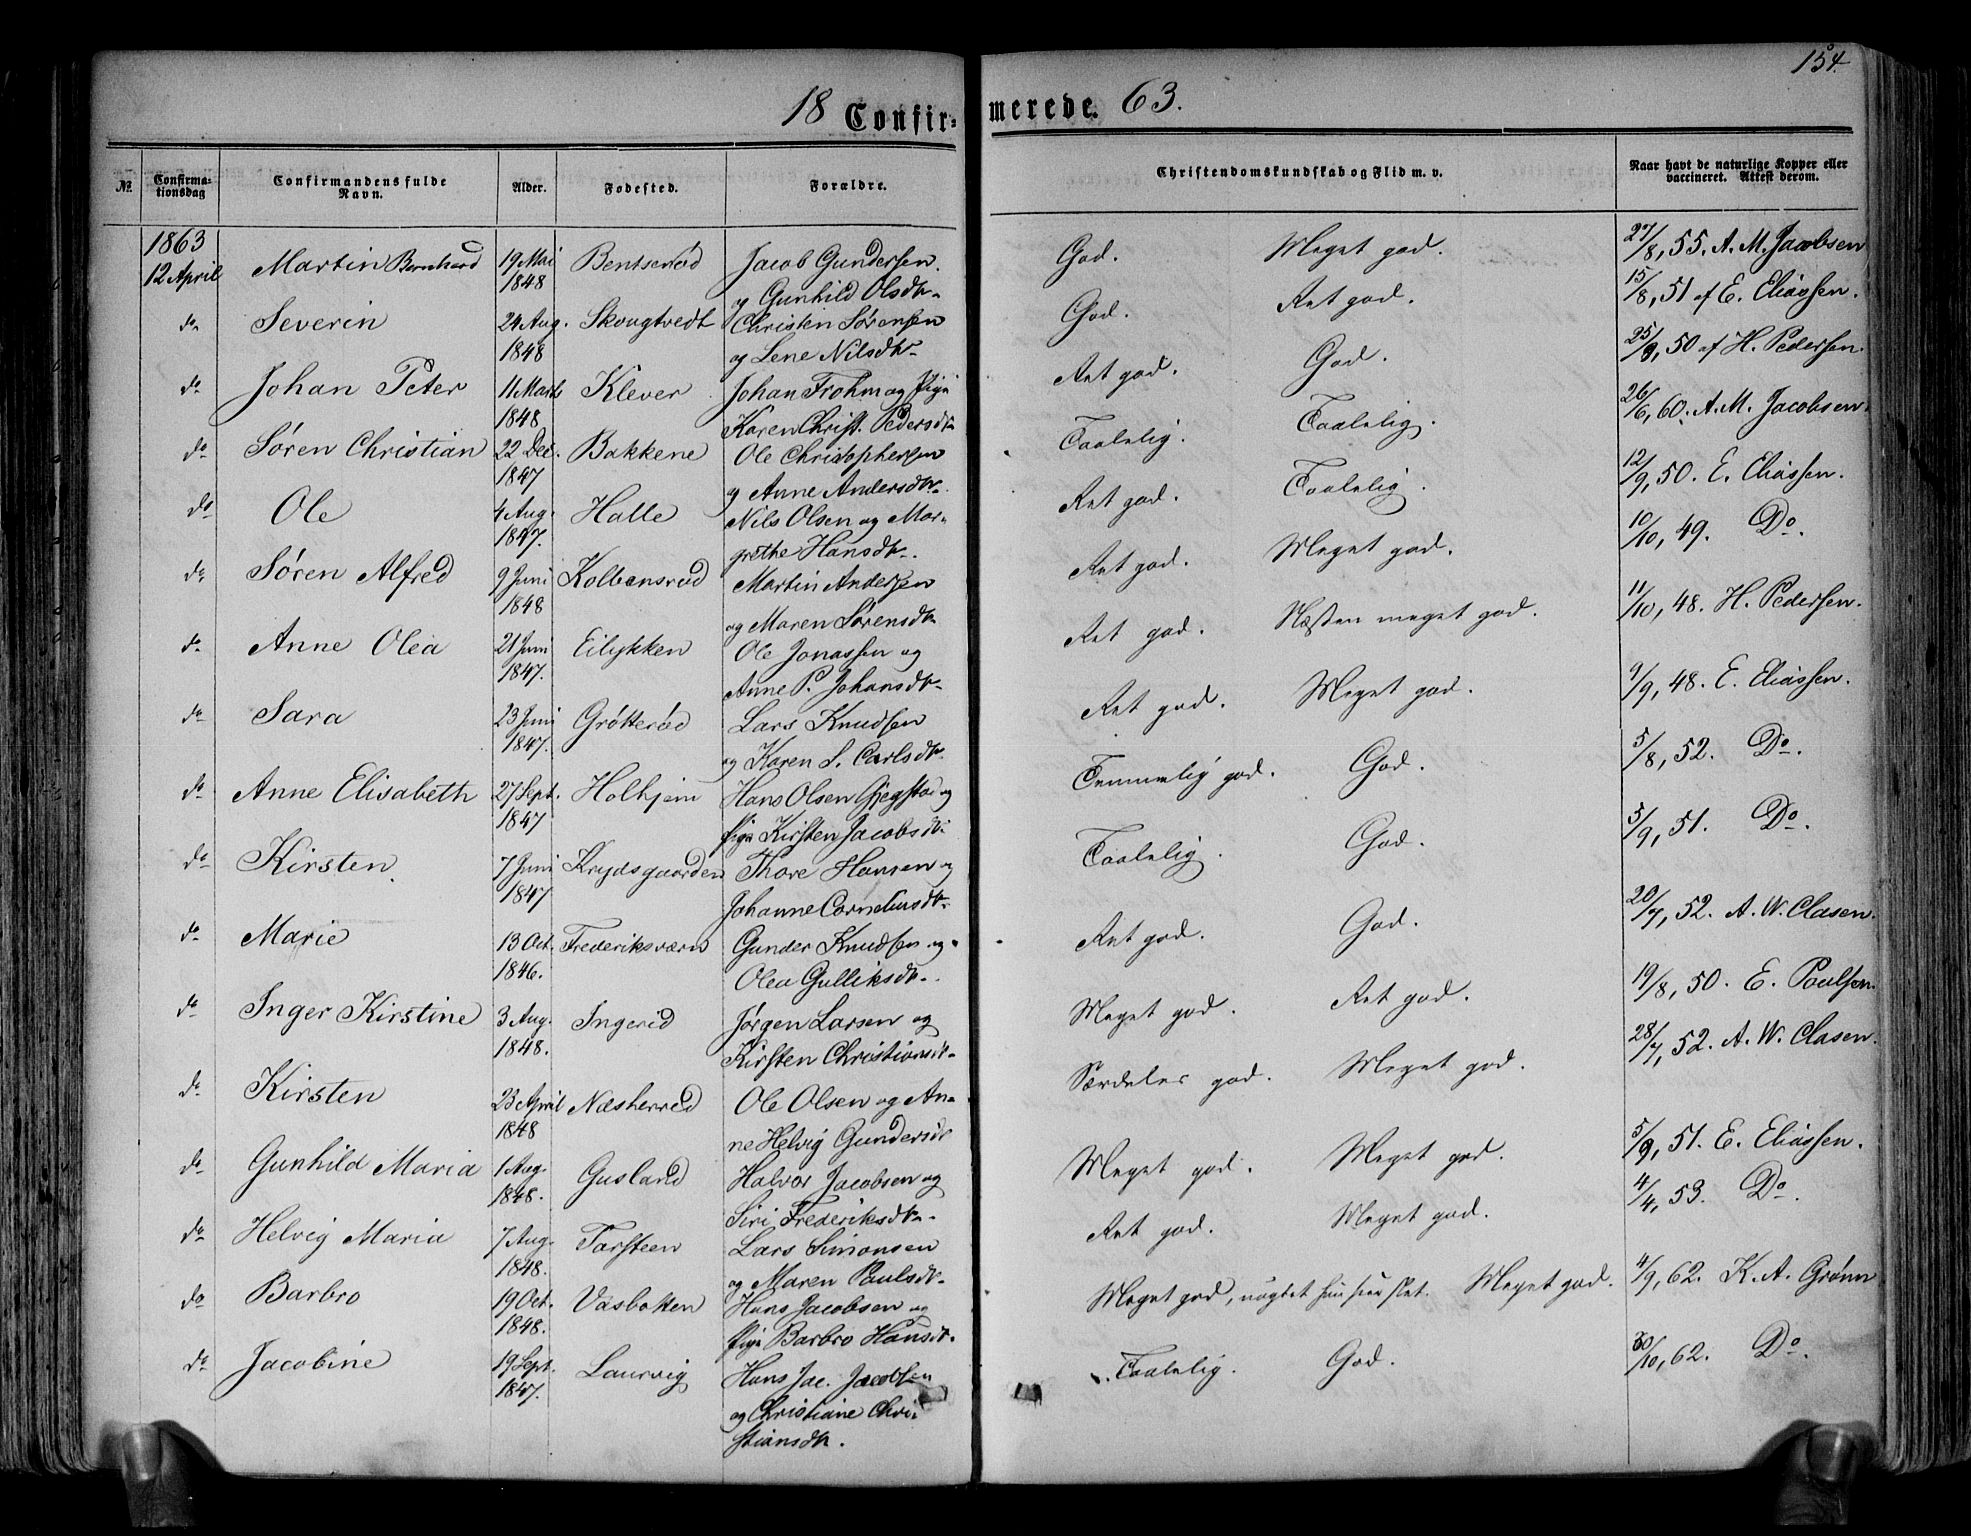 154.
18 Confir=
merede. 63.
No. Confirma-tionsdag Confirmandens fulde Navn. Alder. Fødested. Forældre. Christendomskundskab og Flid m. v. Naar havt de naturlige Kopper eller vaccineret. Attest derom.
1863
12 April Martin Bernhard 19 Mai 1848 Bentserød Jacob Gundersen og Gunhild Olsdtr. God. Meget god. 27/8, 55. A. M. Jacobsen
do Severin 24 Aug. 1848 Skougtvedt Christen Sørensen og Lene Nilsdtr. God. Ret god. 15/8, 51 af E. Eliassen.
do Johan Peter 11 Marts 1848 Klever Johan Frohm og Pige Karen Christ. Pedersdtr. Ret god. God. 25/9, 50 af H. Pedersen.
do Søren Christian 22 Dec. 1847 Bakkene Ole Christophersen og Anne Andersdtr. Taalelig. Taalelig. 26/6, 60. A. M. Jacobsen.
do Ole 4 Aug. 1847. Halle Nils Olsen og Margrethe Hansdtr. Ret god. Taalelig. 12/9, 50. E. Eliassen.
do Søren Alfred 9 Juni 1848 Kolbensrød Martin Andersen og Maren Sørensdtr. Ret god. Meget god. 10/10, 49. Do.
do Anne Olea 21 Juni 1847. Eilykken Ole Jonassen og Anne P. Johansdtr. Ret god. Næsten meget god. 11/10, 48. H. Pedersen.
do Sara 23 Juni 1847. Grøtterød Lars Knudsen og Karen S. Carlsdtr. Ret god. Meget god. 9/9, 48. E. Eliassen.
do Anne Elisabeth 27 Sept. 1847 Holhjem Hans Olsen Gjegstad og Pige Kirsten Jacobsdtr. Temmelig god. God. 5/8, 52. Do.
do Kirsten 7 Juni 1847 Krydsgaarden Thore Hansen og Johanne Corneliusdtr. Taalelig. God. 5/9, 51. Do.
do Marie 13 Oct. 1846. Frederiksværn Gunder Knudsen og Olea Gulliksdtr. Ret god. God. 20/7, 52. A. W. Clasen.
do Inger Kirstine 3 Aug. 1848. Ingerid Jørgen Larsen og Kirsten Christiansdtr. Meget god. Ret god. 19/8, 50. E. Poulsen.
do Kirsten 23 April 1848 Næsherred Ole Olsen og Anne Helvig Gundersdtr Særdeles god. Meget god. 28/7, 52. A. W. Clasen.
do Gunhild Maria 1 Aug. 1848. Gusland Halvor Jacobsen og Siri Frederiksdtr. Meget god. Meget god. 5/9, 51. E. Eliassen.
do Helvig Maria 7 Aug. 1848. Farsteen Lars Simonsen og Maren Paulsdtr. Ret god. Meget god. 4/4, 53. Do.
do Barbro 19 Oct. 1848. Vasbotten Hans Jacobsen og Pige Barbro Hansdtr. Meget god, Meget god. 4/9, 62. K. A. Grønn
do Jacobine 19 Sept. 1847. Laurvig Hans Jac. Jacobsen og Christiane Christiansdtr. Taalelig. God. 30/10, 62. Do.